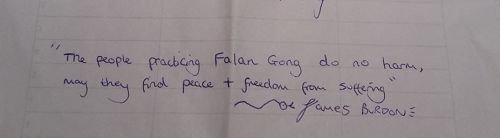 "The people practicing Falan Gong do no harm,
may they find peace + freedom from suffering"
James BURDONE